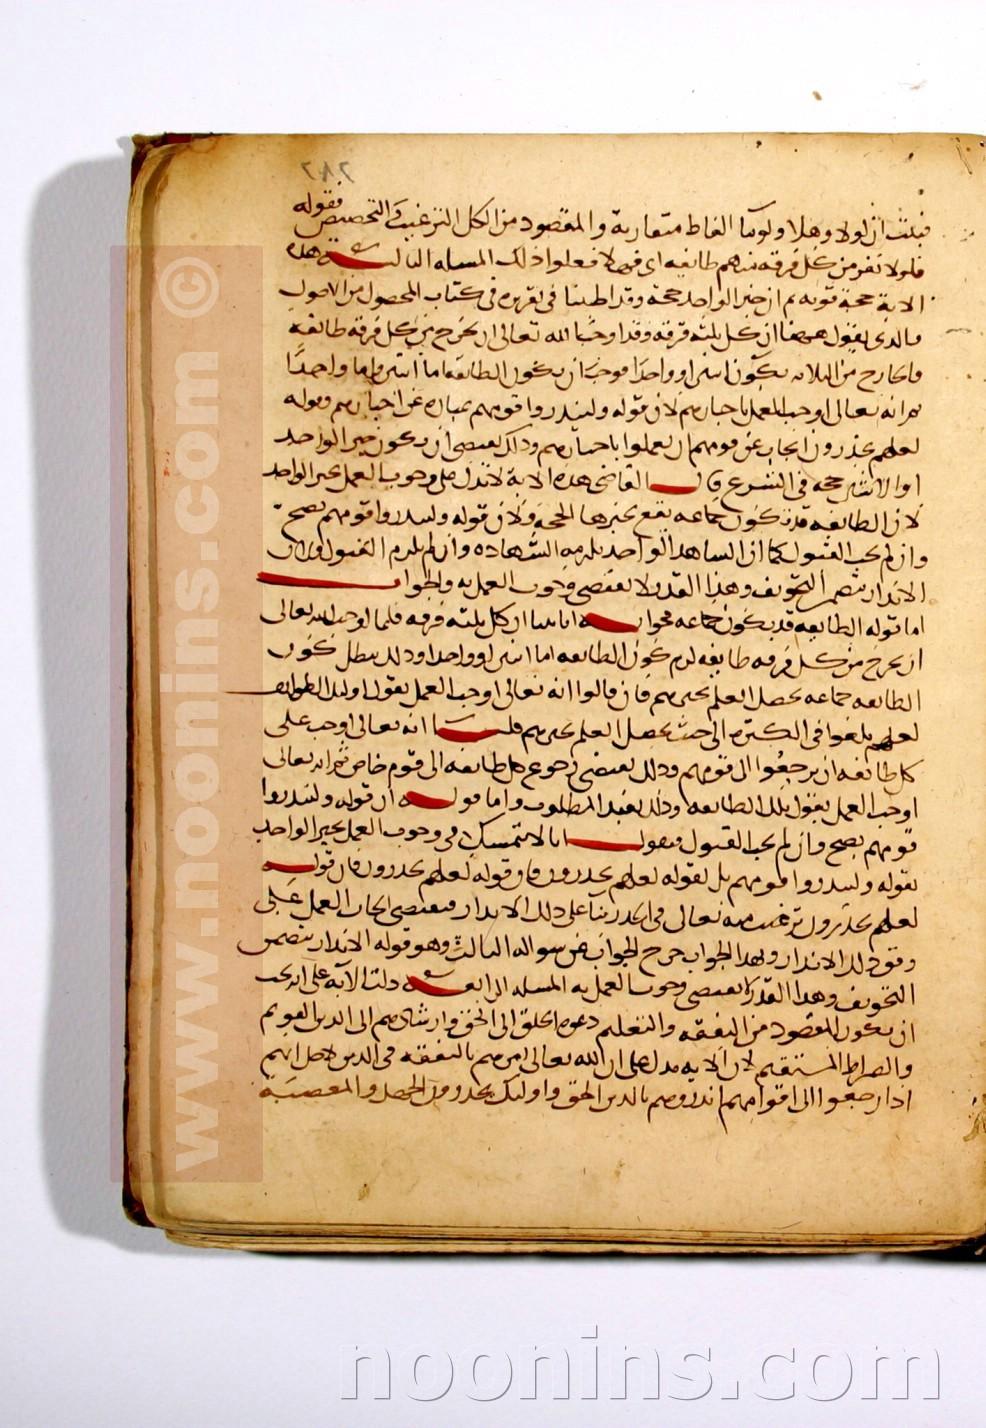 ٢٨٢
فثبت ان لولا وهلا ولوما الفاظ متقاربة والمقصود من الكل الترغيب والتحضيض فقوله
فلولا نفر من كل فرقه منهم طائفه اى فهلا فعلوا ذلك المسله الثالثه هذه
الاية حجة قويه ثم ان خبر الواحد حجة وقد اطنبنا فى تقريره فى كتاب المحصول من الاصول
والذى نقول ههنا ان كل ثلثه فرقه وقد اوجب الله تعالى ان يخرج من كل فرقة طائفه
والخارج من الثلاثه يكون اثنين او واحدا فوجب ان يكون الطائفه اما اثنين واما واحدا
ثم انه تعالى اوجب العمل باخبارهم لان قوله ولينذروا قومهم عبارة عن اخبارهم وقوله
لعلهم يحذرون ايجاب على قومهم ان يعملوا باخبارهم وذلك يقتضى ان يكون خبر الواحد
او الاثنين حجه فى الشرع قال القاضى هذه الاية لا تدل على وجوب العمل بخبر الواحد
لان الطائفه قد تكون جماعه يقع بخبرها الحجة ولان قوله ولينذروا قومهم يصح
وان لم يجب القبول كما ان الشاهد الواحد يلزمه الشهاده وان لم يلزم القبول ولان
الانذار يتضمن التخويف وهذا القدر لا يقتضى وجوب العمل به والجواب
اما قوله الطائفه قد يكون جماعه فجوابه انا بينا ان كل ثلثه فرقه فلما اوجب الله تعالى
ان يخرج من كل فرقه طايفه لزم كون الطائفه اما اثنين او واحدا وذلك يبطل كون
الطائفه جماعه يحصل العلم بخبرهم فان قالوا انه تعالى اوجب العمل بقول اولئك الطوايف
لعلهم بلغوا فى الكثره الى حيث يحصل العلم بخبرهم قلنا انه تعالى اوجب على
كل طائفه ان يرجعوا الى قومهم وذلك يقتضى رجوع كل طائفه الى قوم خاص ثم انه تعالى
اوجب العمل بقول تلك الطائفه وذلك يفيد المطلوب واما قوله ان قوله ولينذروا
قومهم يصح وان لم يجب القبول فنقول انا لا نتمسك فى وجوب العمل بخبر الواحد
بقوله ولينذروا قومهم بل بقوله لعلهم يحذرون فان قوله لعلهم يحذرون فان قوله
لعلهم يحذرون ترغيب منه تعالى فى الحذر بنا على ذلك الانذار فيقتضى ايجاب العمل على
وفق ذلك الانذار وبهذا الجواب خرج الجواب عن سواله الثالث وهو قوله الانذار يتضمن
التخويف وهذا القدر لا يقتضى وجوب العمل به المسله الرابعه دلت الآية على انه يجب
ان يكون المقصود من التفقه والتعلم دعوه الخلق الى الحق وارشادهم الى الدين القويم
والصراط المستقيم لان الايه تدل على ان الله تعالى امرهم بالتفقه فى الدين لاجل انهم
اذا رجعوا الى اقوامهم انذروهم بالدين الحق واولئك يحذرون الجهل والمعصية
www.noonins.com ©
noonins.com